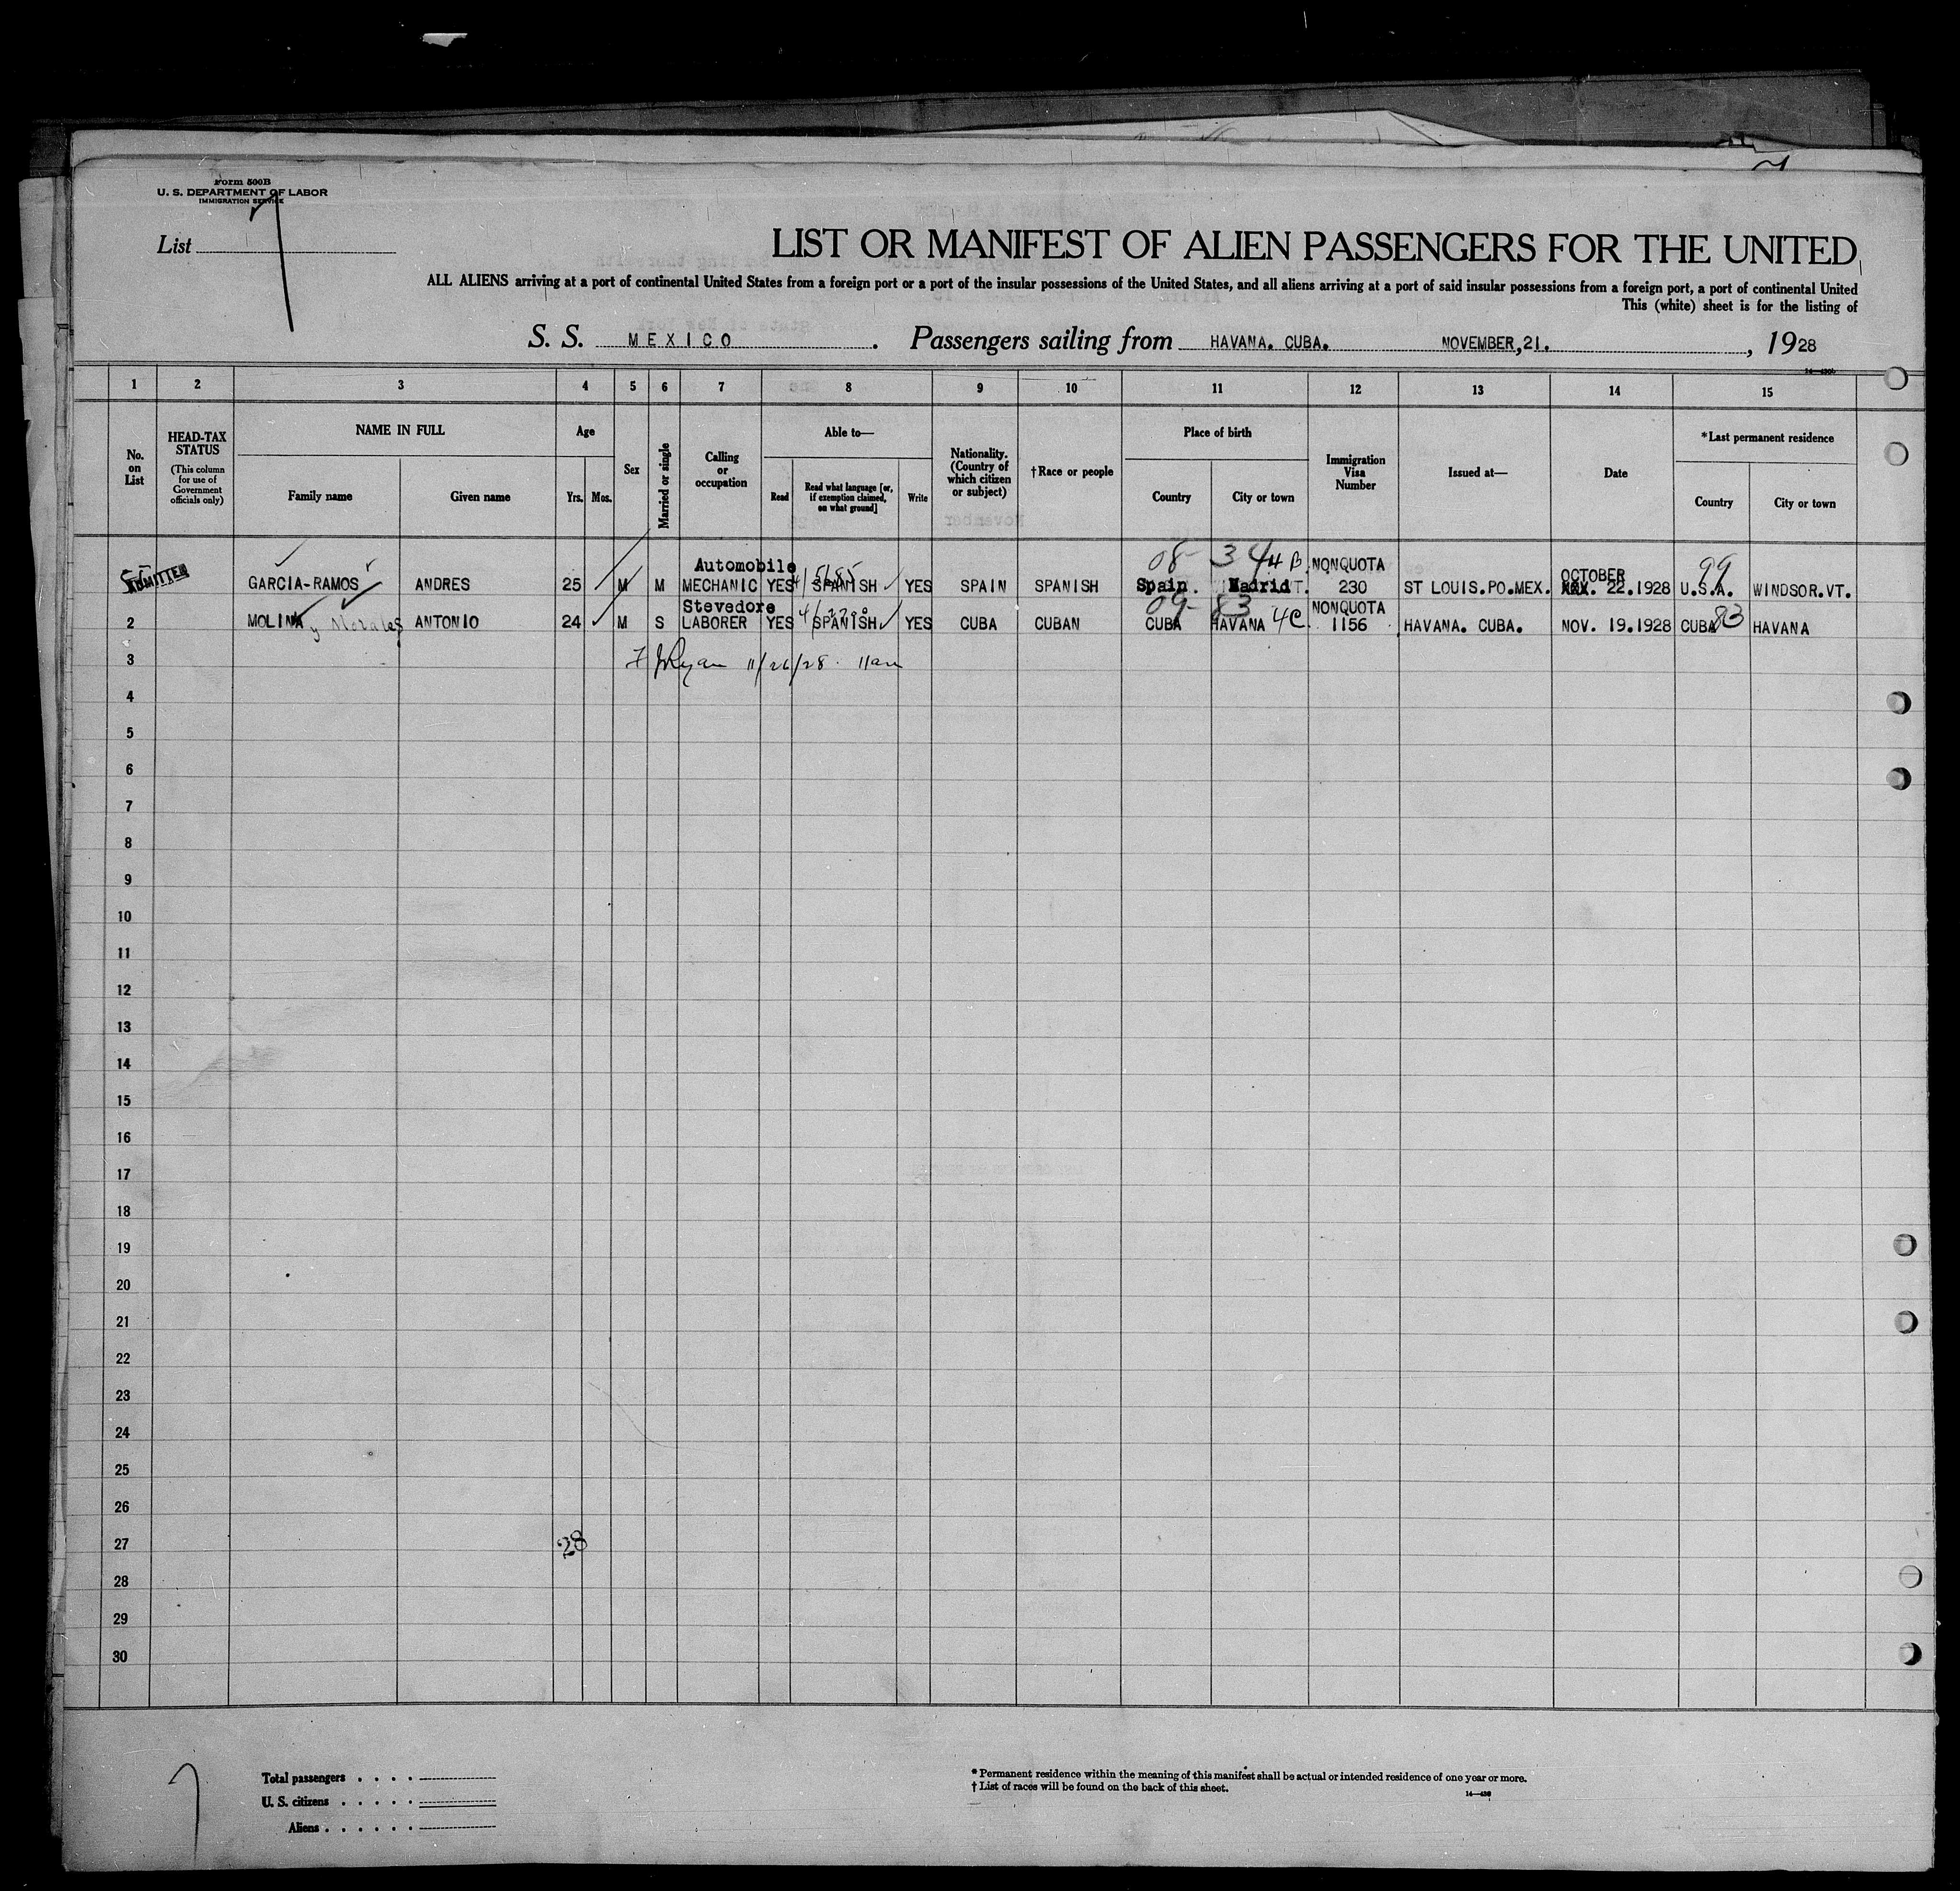 Form 500B
U. S. DEPARTMENT OF LABOR
IMMIGRATION SERVICE
List 7
LIST OR MANIFEST OF ALIEN PASSENGERS FOR THE UNITED
ALL ALIENS arriving at a port of continental United States from a foreign port or a port of the insular possessions of the United States, and all aliens arriving at a port of said insular possessions from a foreign port, a port of continental United
This (white) sheet is for the listing of
S. S. MEXICO. Passengers sailing from HAVANA. CUBA. NOVEMBER,21., 1928
1 2 3 4 5 6 7 8 9 10 11 12 13 14 15
No. on List
HEAD-TAX STATUS
(This column for use of Government officials only)
NAME IN FULL
Family name
Given name
Age
Yrs.
Mos.
Sex
Married or single
Calling or occupation
Able to—
Read
Read what language [or, if exemption claimed, on what ground]
Write
Nationality. (Country of which citizen or subject)
†Race or people
Place of birth
Country
City or town
Immigration Visa Number
Issued at—
Date
*Last permanent residence
Country
City or town
08- 34 4B. NONQUOTA 99
Automobile
OCTOBER
ADMITTED GARCIA-RAMOS ANDRES 25 M M MECHANIC YES SPANISH YES SPAIN SPANISH Spain. Madrid 230 ST LOUIS.PO.MEX. 22.1928 U.S.A. WINDSOR.VT.
Stevedore 09- 83 NONQUOTA
2 MOLINA y Morales ANTONIO 24 M S LABORER YES SPANISH YES CUBA CUBAN CUBA HAVANA 4C 1156 HAVANA. CUBA. NOV. 19.1928 CUBA 83 HAVANA
3 Ryan 11/26/28. 11am
4
5
6
7
8
9
10
11
12
13
14
15
16
17
18
19
20
21
22
23
24
25
26
27 28
28
29
30
7
Total passengers . . . .
U. S. citizens . . . . .
Aliens . . . . . .
* Permanent residence within the meaning of this manifest shall be actual or intended residence of one year or more.
† List of races will be found on the back of this sheet.